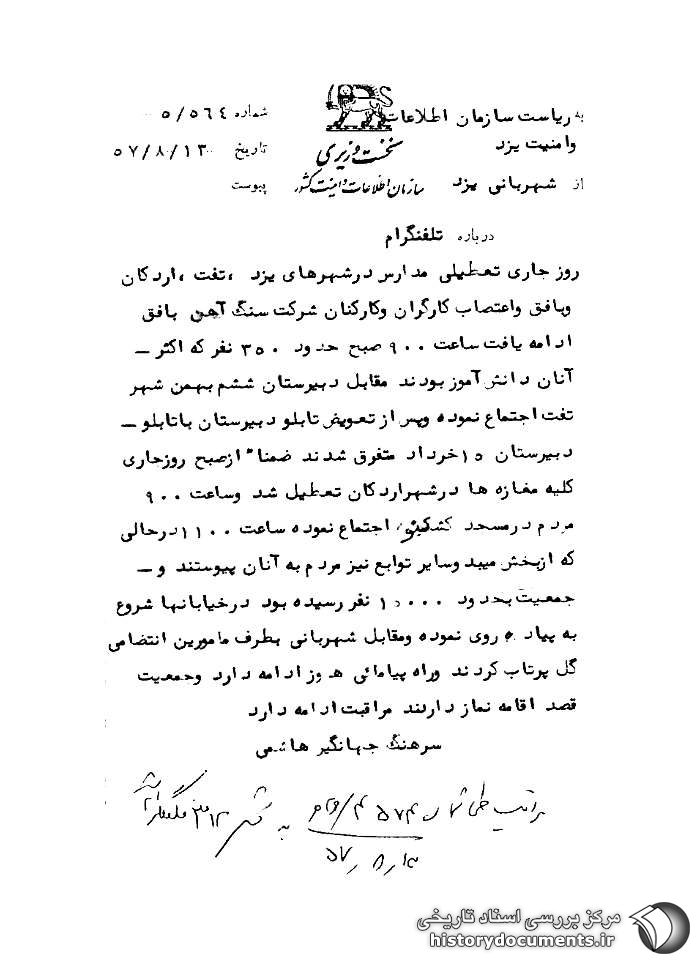 به ریاست سازمان اطلاعات
وامنیت یزد
از شهربانی یزد
نخست وزیری
سازمان اطلاعات وامنیت کشور
شماره ۵/۵۶۴
تاریخ ۵۷/۸/۱۳
پیوست
درباره تلفنگرام
روز جاری تعطیلی مدارس درشهرهای یزد ،تفت ،اردکان
وبافق واعتصاب کارگران وکارکنان شرکت سنگ آهن بافق
ادامه یافت ساعت ۹۰۰ صبح حدود ۳۵۰ نفر که اکثر ـ
آنان دانش آموز بودند مقابل دبیرستان ششم بهمن شهر
تفت اجتماع نموده وپس از تعویض تابلو دبیرستان باتابلو ـ
دبیرستان ۱۵خرداد متفرق شدند ضمناً ازصبح روزجاری
کلیه مغازه ها درشهراردکان تعطیل شد وساعت ۹۰۰
مردم درمسجد اجتماع نموده ساعت ۱۱۰۰درحالی
که ازبخش میبد وسایر توابع نیز مردم به آنان پیوستند و ـ
جمعیت بحدود ۱۰۰۰۰ نفر رسیده بود درخیابانها شروع
به پیاده روی نموده ومقابل شهربانی بطرف مامورین انتضامی
گل پرتاب کردند وراه پیامائی هنوز ادامه دارد وجمعیت
قصد اقامه نماز دارند مراقبت ادامه دارد
سرهنگ جهانگیر هاشمی
مراتب طی شماره
۵۷/۸/۱۳
مرکز بررسی اسناد تاریخی
historydocuments.ir